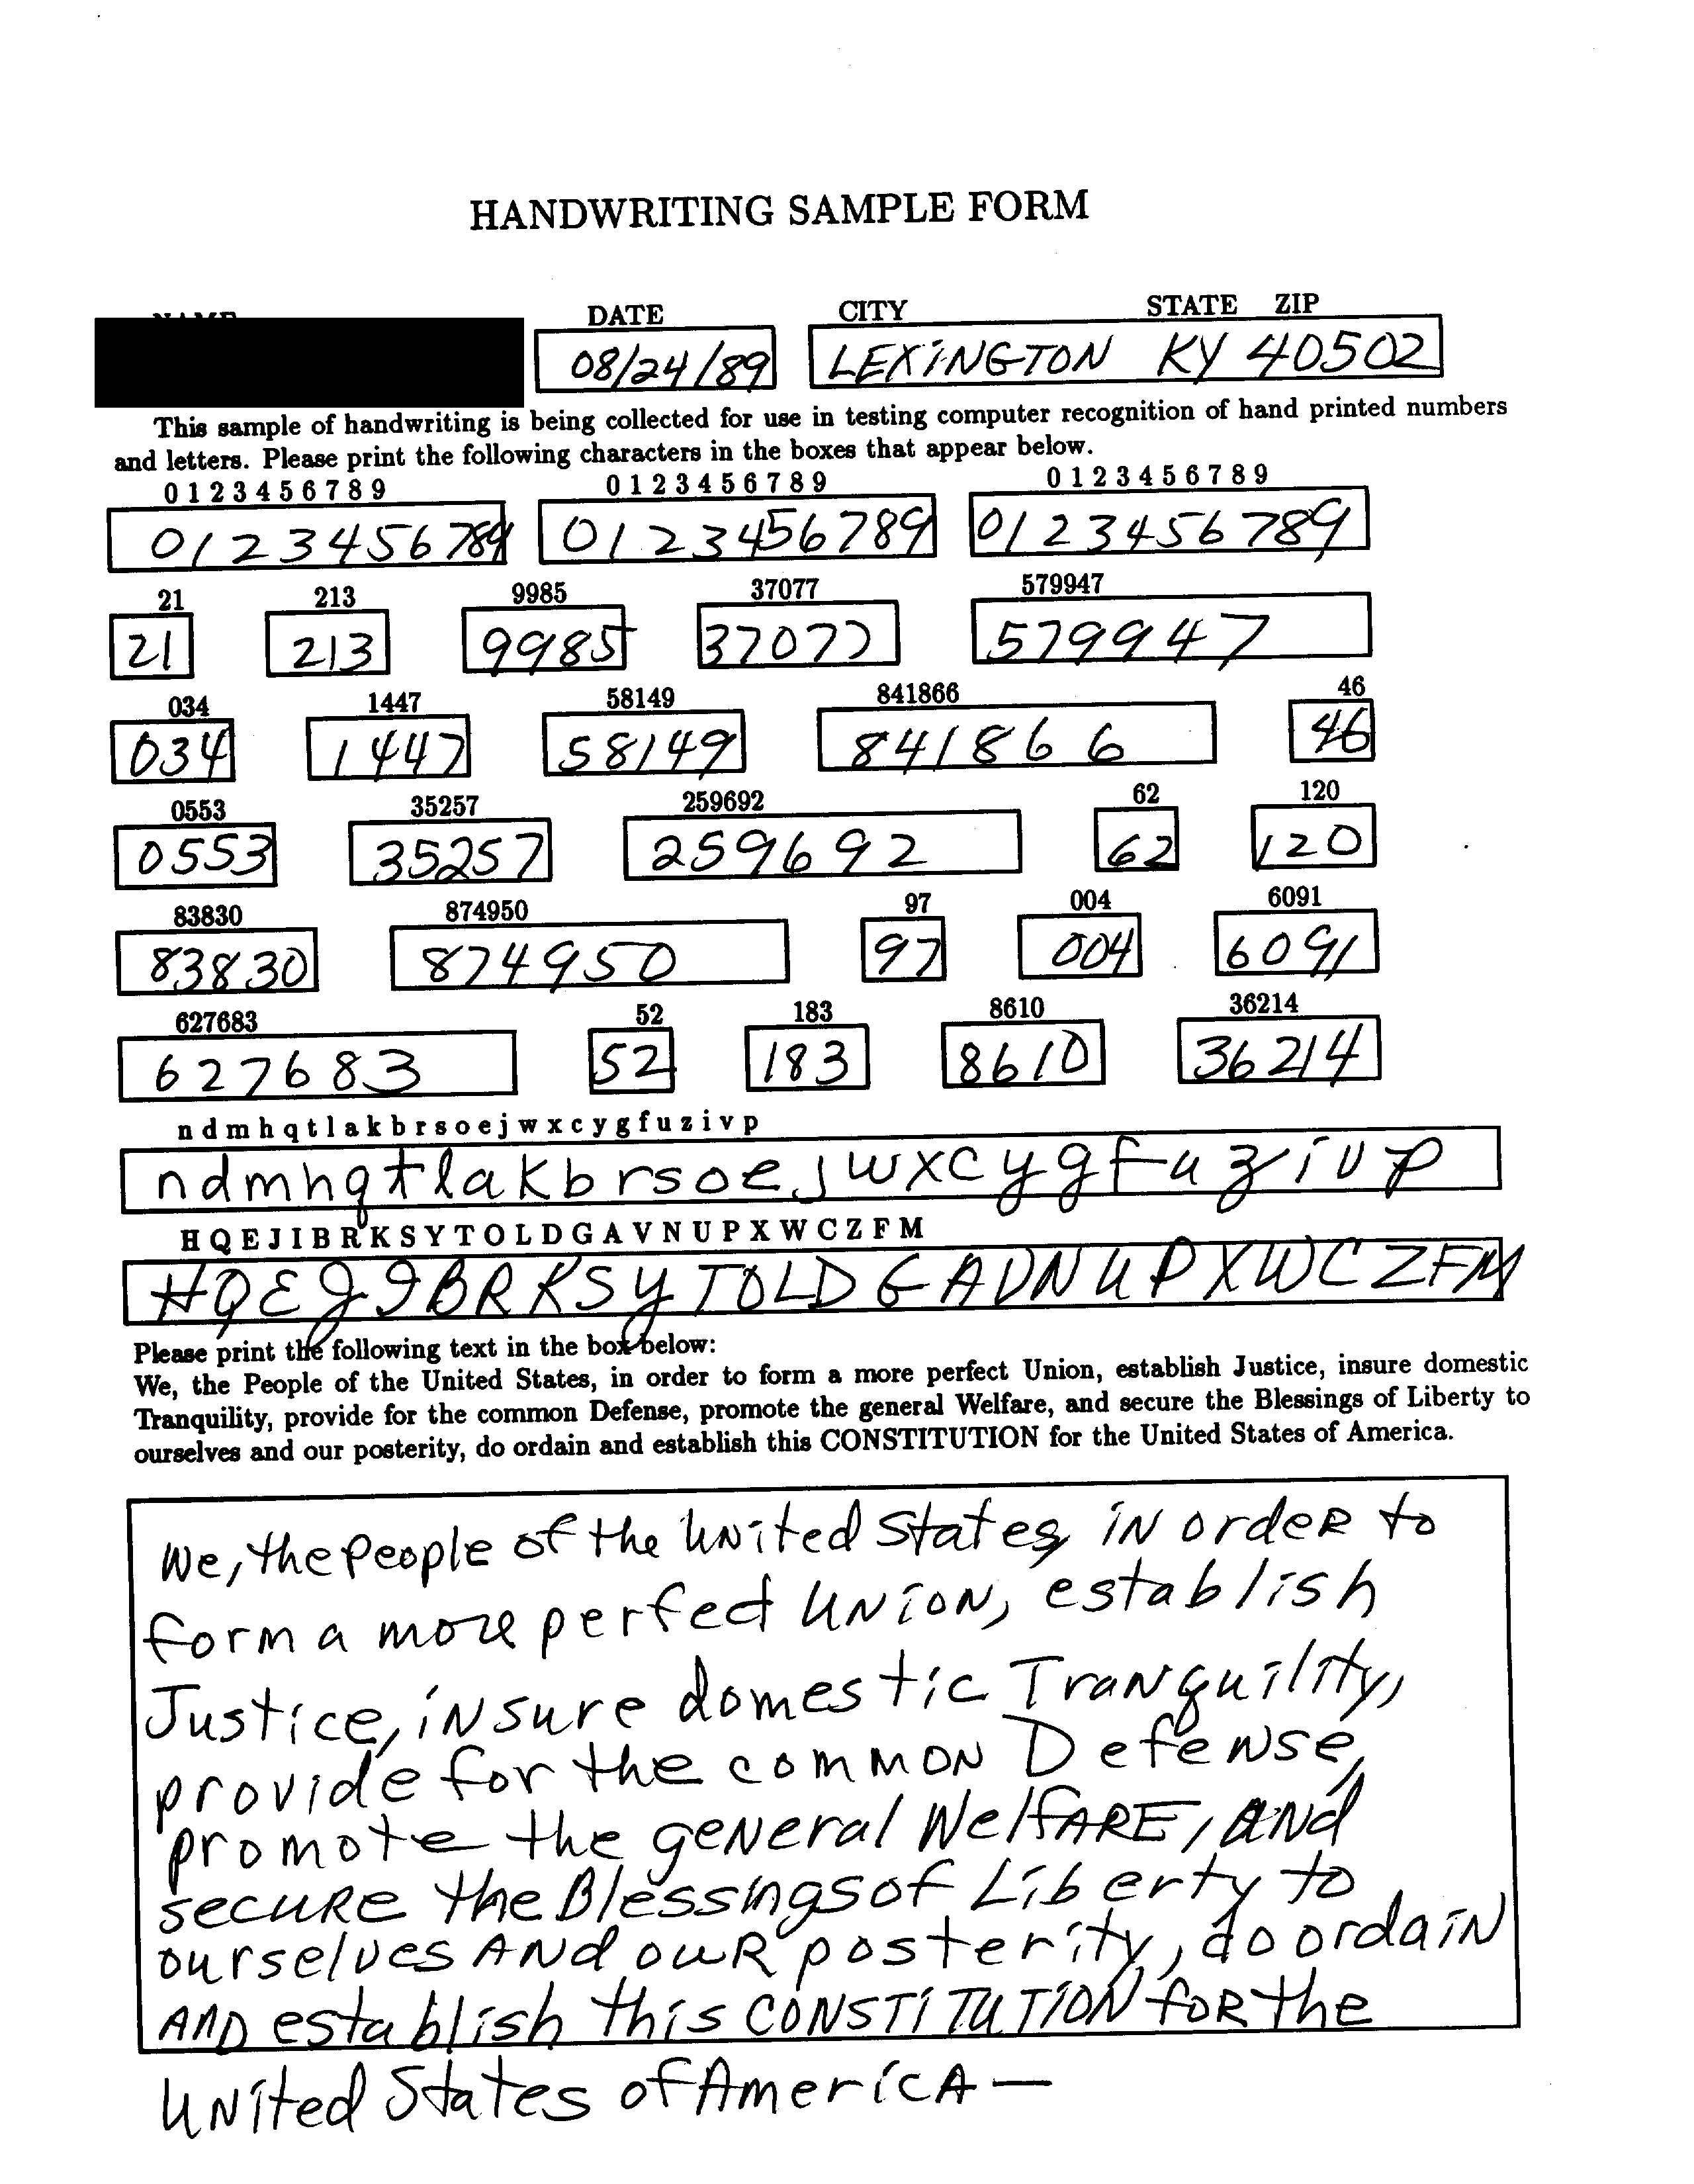 HANDWRITING SAMPLE FORM
DATE CITY STATE ZIP
08/24/89 LEXINGTON KY 40502
This sample of handwriting is being collected for use in testing computer recognition of hand printed numbers
and letters. Please print the following characters in the boxes that appear below.
0 1 2 3 4 5 6 7 8 9 0 1 2 3 4 5 6 7 8 9 0 1 2 3 4 5 6 7 8 9
0123456789 0123456789 0123456789
21 213 9985 37077 579947
21 213 9985 37077 579947
034 1447 58149 841866 46
034 1447 58149 841866 46
0553 35257 259692 62 120
0553 35257 259692 62 120
83830 874950 97 004 6091
83830 874950 97 004 6091
627683 52 183 8610 36214
627683 52 183 8610 36214
n d m h q t l a k b r s o e j w x c y g f u z i v p
n d m h q t l a k b r s o e j w x c y g f u z i v p
H Q E J I B R K S Y T O L D G A V N U P X W C Z F M
H Q E J I B R K S Y T O L D G A V N U P X W C Z F M
Please print the following text in the box below:
We, the People of the United States, in order to form a more perfect Union, establish Justice, insure domestic
Tranquility, provide for the common Defense, promote the general Welfare, and secure the Blessings of Liberty to
ourselves and our posterity, do ordain and establish this CONSTITUTION for the United States of America.
We, the People of the United States, iN order to
form a more perfect UNiON, establish
Justice, iNsure domestic TraNquility,
provide for the commoN DefeNse,
promote the geNeral WelfARE, ANd
secuRe the Blessings of Liberty to
ourselves ANd ouR posterity, do ordaiN
AND establish this CONSTiTUTiON foR the
UNited States of AmericA—